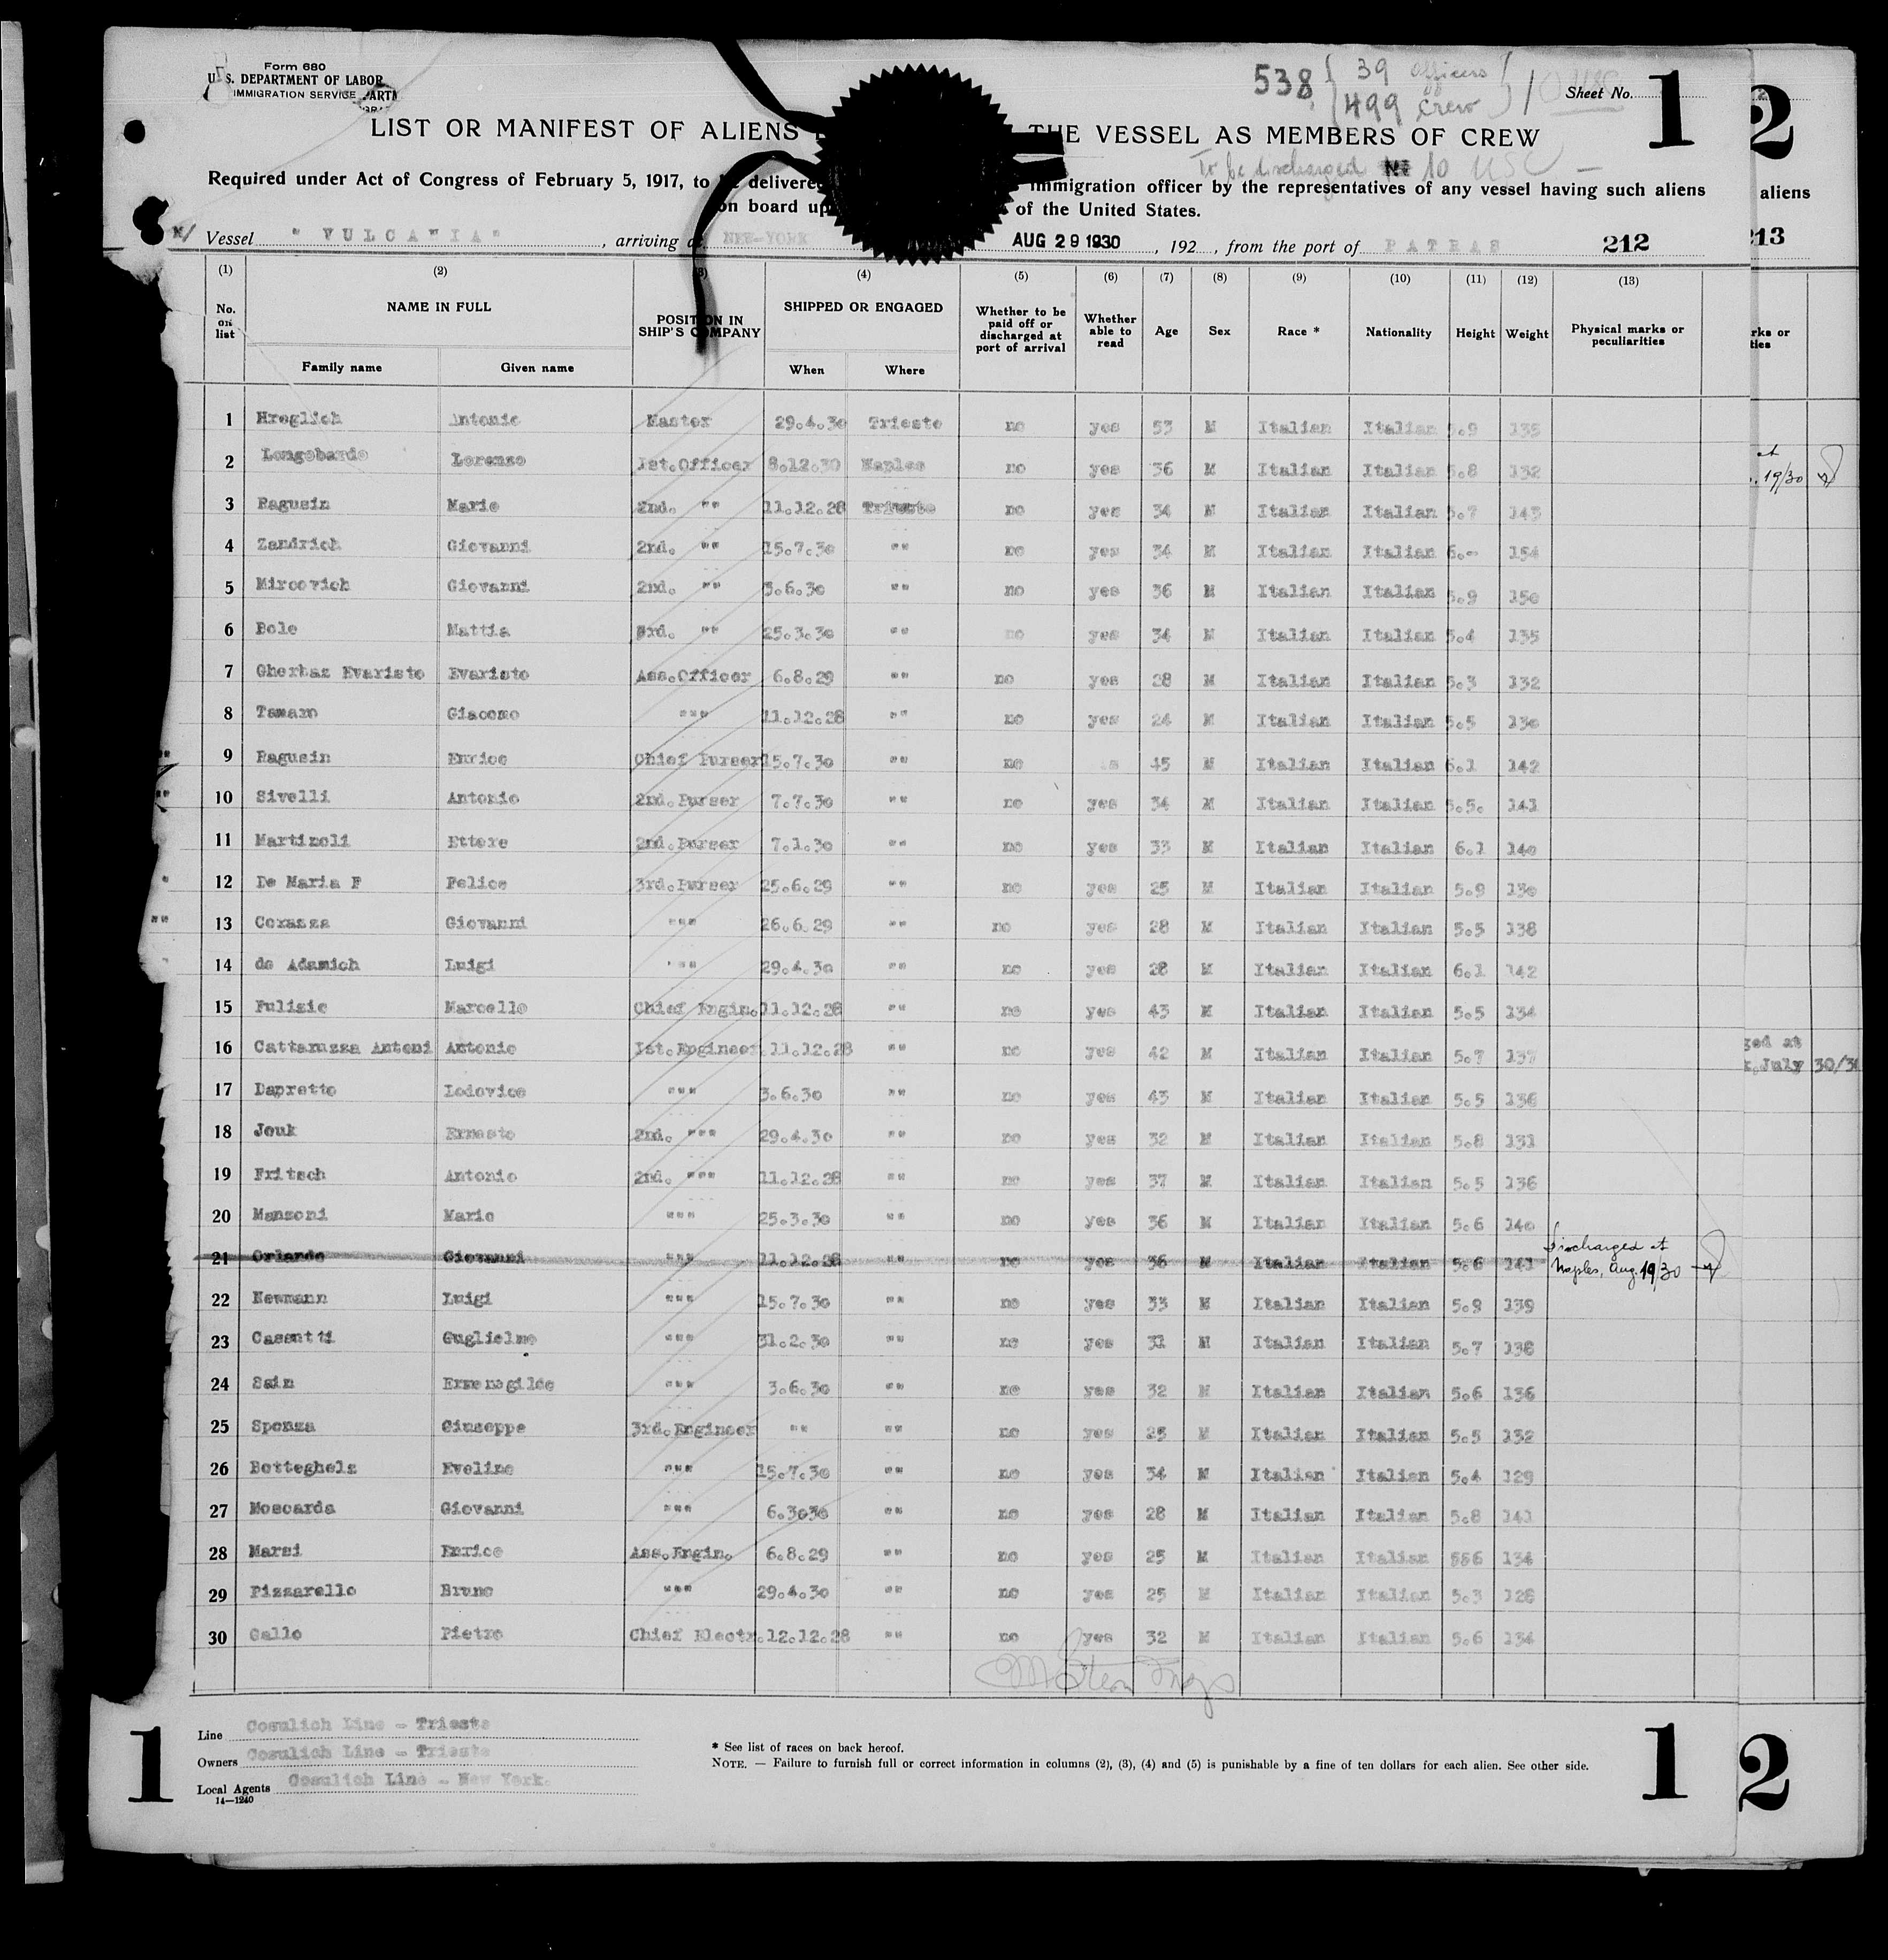 Form 680
U. S. DEPARTMENT OF LABOR
IMMIGRATION SERVICE
538 { 39 officers
499 crew }
Sheet No. 1
2
LIST OR MANIFEST OF ALIENS THE VESSEL AS MEMBERS OF CREW
To be discharged 10 USC
Required under Act of Congress of February 5, 1917, to be delivered immigration officer by the representatives of any vessel having such aliens
aliens
on board up of the United States.
Vessel "VULCANIA", arriving at NEW-YORK AUG 29 1930, 192, from the port of PATRAS 212
213
(1) (2) (3) (4) (5) (6) (7) (8) (9) (10) (11) (12) (13)
No. on list NAME IN FULL POSITION IN SHIP'S COMPANY SHIPPED OR ENGAGED Whether to be paid off or discharged at port of arrival Whether able to read Age Sex Race * Nationality Height Weight Physical marks or peculiarities
Family name Given name When Where
1 Hreglich Antonio Master 29.4.30 Trieste no yes 53 M Italian Italian 5.9 135
2 Longobardo Lorenzo Ist.Officer 8.12.30 Naples no yes 36 M Italian Italian 5.8 132
3 Ragusin Mario 2nd. "" 11.12.28 Trieste no yes 34 M Italian Italian 5.7 143
4 Zandrich Giovanni 2nd. "" 15.7.30 "" no yes 34 M Italian Italian 6.- 154
5 Mircovich Giovanni 2nd. "" 3.6.30 "" no yes 36 M Italian Italian 5.9 150
6 Bole Mattia 3rd. "" 25.3.30 "" no yes 34 M Italian Italian 5.4 135
7 Gherbaz Evaristo Evaristo Ass.Officer 6.8.29 "" no yes 28 M Italian Italian 5.3 132
8 Tamaro Giacomo """ 11.12.28 "" no yes 24 M Italian Italian 5.5 130
9 Ragusin Enrico Chief Purser 15.7.30 "" no 45 M Italian Italian 6.1 142
10 Sivelli Antonio 2nd.Purser 7.7.30 "" no yes 34 M Italian Italian 5.5. 141
11 Martinoli Ettore 2nd.Purser 7.1.30 "" no yes 33 M Italian Italian 6.1 140
12 De Maria F Felice 3rd.Purser 25.6.29 "" no yes 25 M Italian Italian 5.9 130
13 Corazza Giovanni """ 26.6.29 "" no yes 28 M Italian Italian 5.5 138
14 de Adamich Luigi """ 29.4.30 "" no yes 28 M Italian Italian 6.1 142
15 Fulizio Marcello Chief Engin. 11.12.28 "" no yes 43 M Italian Italian 5.5 134
16 Cattaruzza Antoni Antonio Ist.Engineer. 11.12.28 "" no yes 42 M Italian Italian 5.7 137
17 Dapretto Lodovico """ 3.6.30 "" no yes 43 M Italian Italian 5.5 136
18 Jouk Ernesto 2nd. """ 29.4.30 "" no yes 32 M Italian Italian 5.8 131
19 Fritsch Antonio 2nd. """ 11.12.28 "" no yes 37 M Italian Italian 5.5 136
20 Manzoni Mario """ 25.3.30 "" no yes 36 M Italian Italian 5.6 140
21 Orlando Giovanni """ 11.12.28 "" no yes 36 M Italian Italian 5.6 141 Discharged at Naples, Aug. 19/30
22 Newmann Luigi """ 15.7.30 "" no yes 33 M Italian Italian 5.9 139
23 Cassutti Guglielmo """ 31.2.30 "" no yes 31 M Italian Italian 5.7 138
24 Sain Ermenogildo """ 3.6.30 "" no yes 32 M Italian Italian 5.6 136
25 Sponza Giuseppe 3rd.Engineer "" "" no yes 25 M Italian Italian 5.5 132
26 Botteghelz Eveline """ 15.7.30 "" no yes 34 M Italian Italian 5.4 129
27 Moscarda Giovanni """ 6.3030 "" no yes 28 M Italian Italian 5.8 141
28 Marsi Enrico Ass.Engin. 6.8.29 "" no yes 25 M Italian Italian 5.6 134
29 Pizzarello Bruno """ 29.4.30 "" no yes 25 M Italian Italian 5.3 128
30 Gallo Pietro Chief Electr. 12.12.28 "" no yes 32 M Italian Italian 5.6 134
rks or
ties
at
19/30
ged at
July 30/30
Line Cosulich Line - Trieste
Owners Cosulich Line - Trieste
Local Agents Cosulich Line - New York.
14—1240
* See list of races on back hereof.
NOTE. — Failure to furnish full or correct information in columns (2), (3), (4) and (5) is punishable by a fine of ten dollars for each alien. See other side.
1
1
2